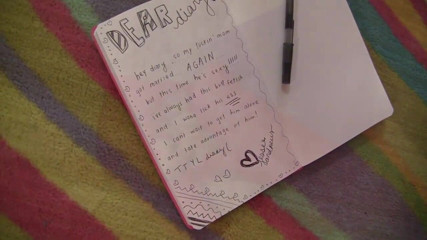 DEAR diary
hey diary, so my fuckin mom
got married AGAIN
but this time he's sexy
ive always had this butt fetish
and i wanna lick his ass
i cant wait to get him alone
and take advantage of him!
TTYL diary!